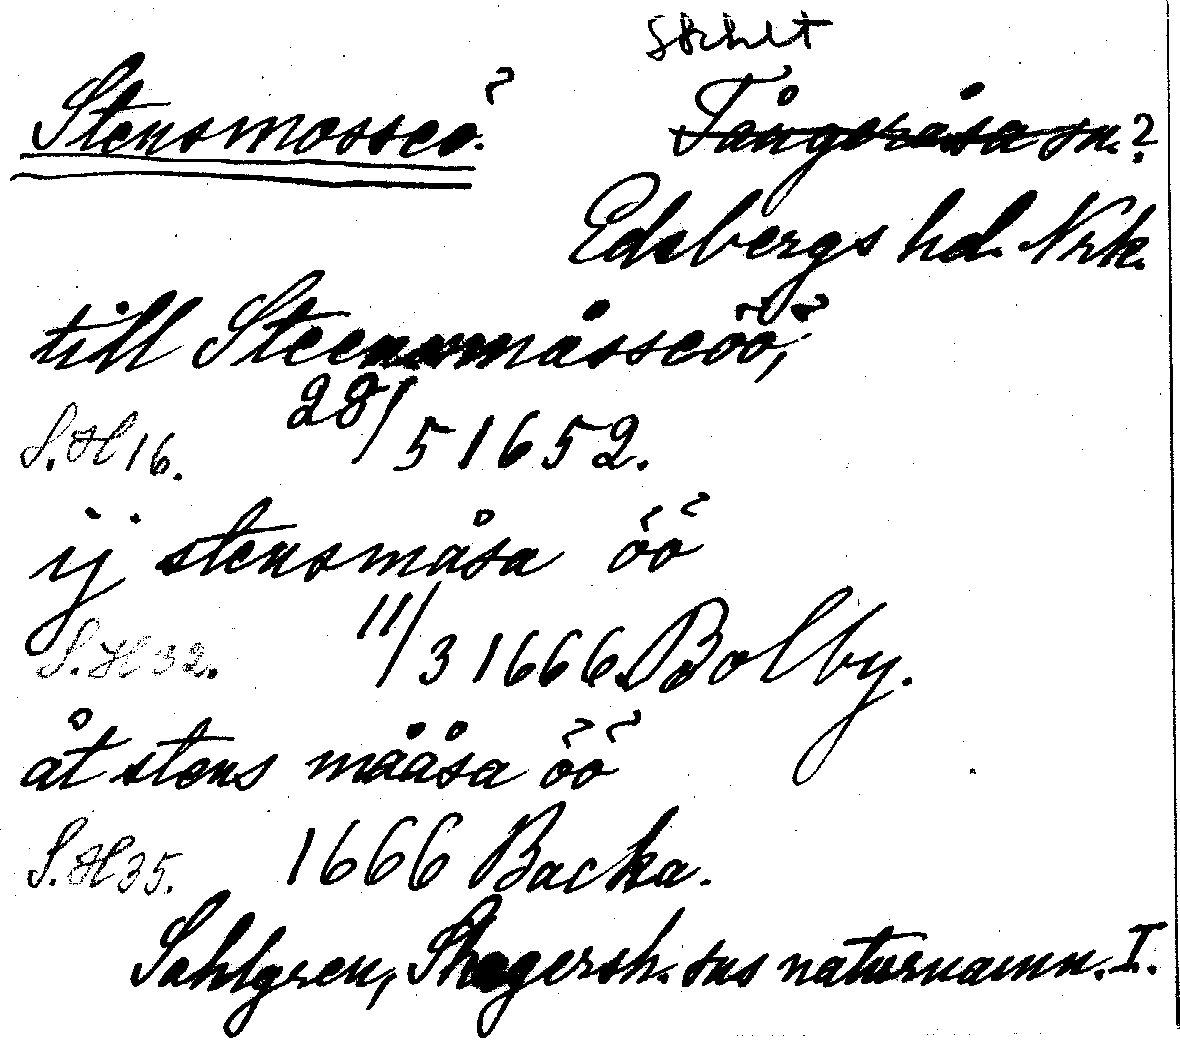 Socket
Stensmosseö. Tångeråsa sn.?
Edsbergs hd. Nrk.
till Steensmåsseöö,
S.H 16. 28/5 1652.
ij stensmåsa öö
S.H 32. 11/3 1666. Bolby.
åt stens mååsa öö
S.H 35. 1666 Backa.
Sahlgren, Skagersh. sns naturnamn. I.